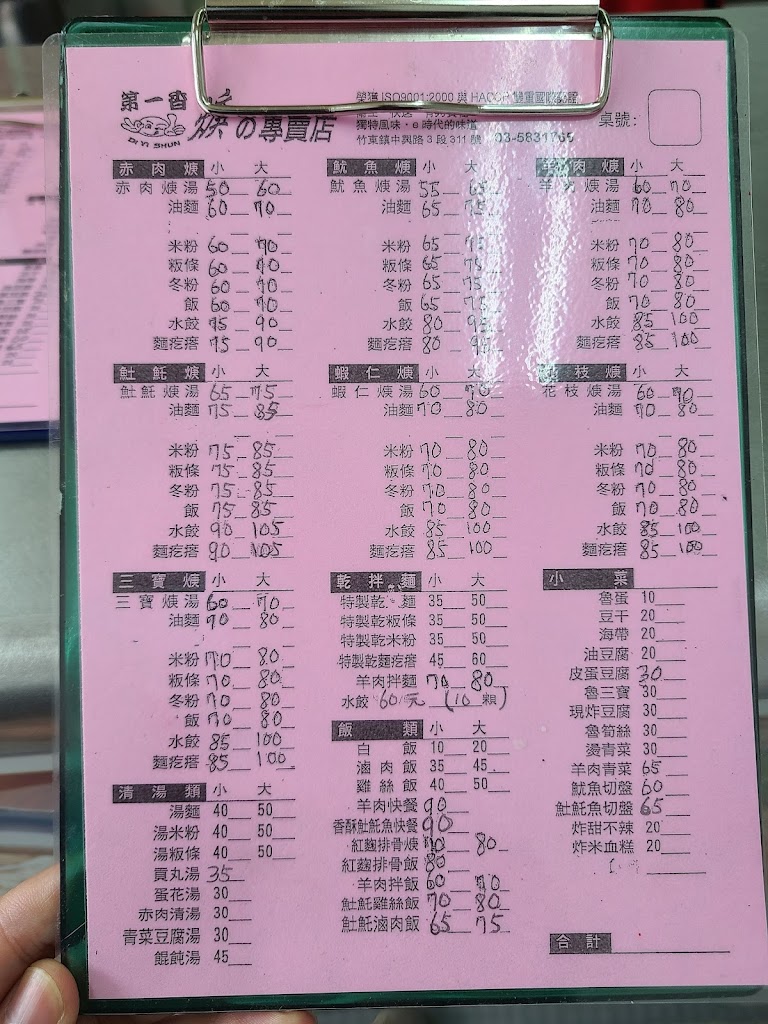 第一香
焿の專賣店
DI YI SHUN
榮獲 ISO9001:2000 與 HACCP 雙重國際認證
獨特風味,e 時代的味道
竹東鎮中興路 3 段 311 號 03-5831765
桌號:
赤肉焿 小 大
赤肉焿湯 50 60
油麵 60 70
米粉 60 70
粄條 60 70
冬粉 60 70
飯 60 70
水餃 75 90
麵疙瘩 75 90
魷魚焿 小 大
魷魚焿湯 55 65
油麵 65 75
米粉 65 75
粄條 65 75
冬粉 65 75
飯 65 75
水餃 80 95
麵疙瘩 80 95
羊肉焿 小 大
羊肉焿湯 60 70
油麵 70 80
米粉 70 80
粄條 70 80
冬粉 70 80
飯 70 80
水餃 85 100
麵疙瘩 85 100
𩵚魠焿 小 大
𩵚魠焿湯 65 75
油麵 75 85
米粉 75 85
粄條 75 85
冬粉 75 85
飯 75 85
水餃 90 105
麵疙瘩 90 105
蝦仁焿 小 大
蝦仁焿湯 60 70
油麵 70 80
米粉 70 80
粄條 70 80
冬粉 70 80
飯 70 80
水餃 85 100
麵疙瘩 85 100
花枝焿 小 大
花枝焿湯 60 70
油麵 70 80
米粉 70 80
粄條 70 80
冬粉 70 80
飯 70 80
水餃 85 100
麵疙瘩 85 100
三寶焿 小 大
三寶焿湯 60 70
油麵 70 80
米粉 70 80
粄條 70 80
冬粉 70 80
飯 70 80
水餃 85 100
麵疙瘩 85 100
清湯類 小 大
湯麵 40 50
湯米粉 40 50
湯粄條 40 50
貢丸湯 35
蛋花湯 30
赤肉清湯 30
青菜豆腐湯 30
餛飩湯 45
乾拌麵 小 大
特製乾麵 35 50
特製乾粄條 35 50
特製乾米粉 35 50
特製乾麵疙瘩 45 60
羊肉拌麵 70 80
水餃 60元 (10顆)
飯類 小 大
白飯 10 20
滷肉飯 35 45
雞絲飯 40 50
羊肉快餐 90
香酥𩵚魠魚快餐 90
紅麴排骨焿 70 80
紅麴排骨飯 80
羊肉拌飯 60 70
𩵚魠雞絲飯 70 80
𩵚魠滷肉飯 65 75
小菜
魯蛋 10
豆干 20
海帶 20
油豆腐 20
皮蛋豆腐 30
魯三寶 30
現炸豆腐 30
魯筍絲 30
燙青菜 30
羊肉青菜 65
魷魚切盤 60
𩵚魠魚切盤 65
炸甜不辣 20
炸米血糕 20
合計